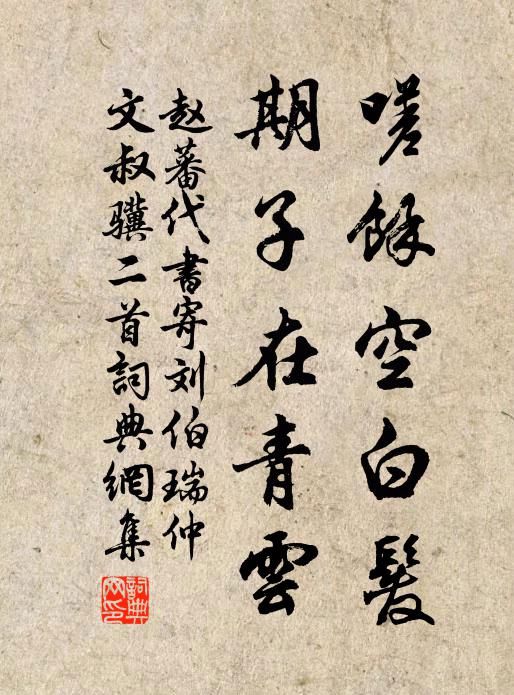 嗟餘空白髮
期子在青雲
赵蕃代書寄刘伯瑞仲
文叔骥二首詞典網集
詞典网印